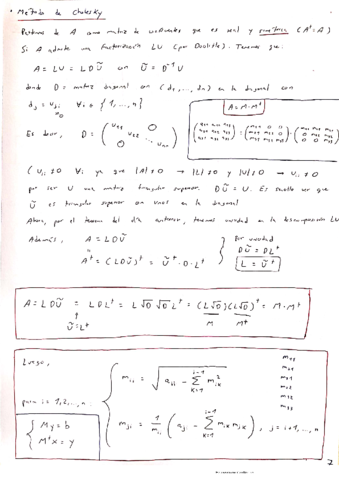 • Método de Cholesky
Partimos de A como matriz de coeficientes que es real y simétrica (Aᵗ=A)
Si A admite una factorización LU (por Doolittle). Tenemos que:
A = LU = LDŨ con Ũ = D⁻¹U
donde D = matriz diagonal con (d₁,...,dₙ) en la diagonal con
dⱼ = uⱼⱼ ∀i ∈ {1,...,n}
≠0
A = M·Mᵗ
Es decir, D = (u₁₁ u₂₂ ... uₙₙ)
(uᵢᵢ ≠ 0 ∀i ya que |A| ≠ 0 → |L| ≠ 0 y |U| ≠ 0 → uᵢᵢ ≠ 0
por ser U una matriz triangular superior. DŨ = U. Es sencillo ver que
Ũ es triangular superior con unos en la diagonal
Ahora, por el teorema del día anterior, tenemos unicidad en la descomposición LU
Además, A = LDŨ
Aᵗ = (LDŨ)ᵗ = Ũᵗ·D·Lᵗ
Por unicidad
DŨ = DLᵗ
L = Ũᵗ
A = LDŨ = LDLᵗ = L√D √D Lᵗ = (L√D)(L√D)ᵗ = M·Mᵗ
↑
Ũ = Lᵗ
M Mᵗ
Luego,
para i = 1,2,..., n:
mᵢᵢ = √(aᵢᵢ − Σₖ₌₁ⁱ⁻¹ m²ᵢₖ)
mⱼᵢ = 1/mᵢᵢ (aⱼᵢ − Σₖ₌₁ⁱ⁻¹ mᵢₖ mⱼₖ), j = i+1,..., n
My = b
Mᵗx = y
m₁₁
m₂₁
m₃₁
m₂₂
m₃₂
m₃₃